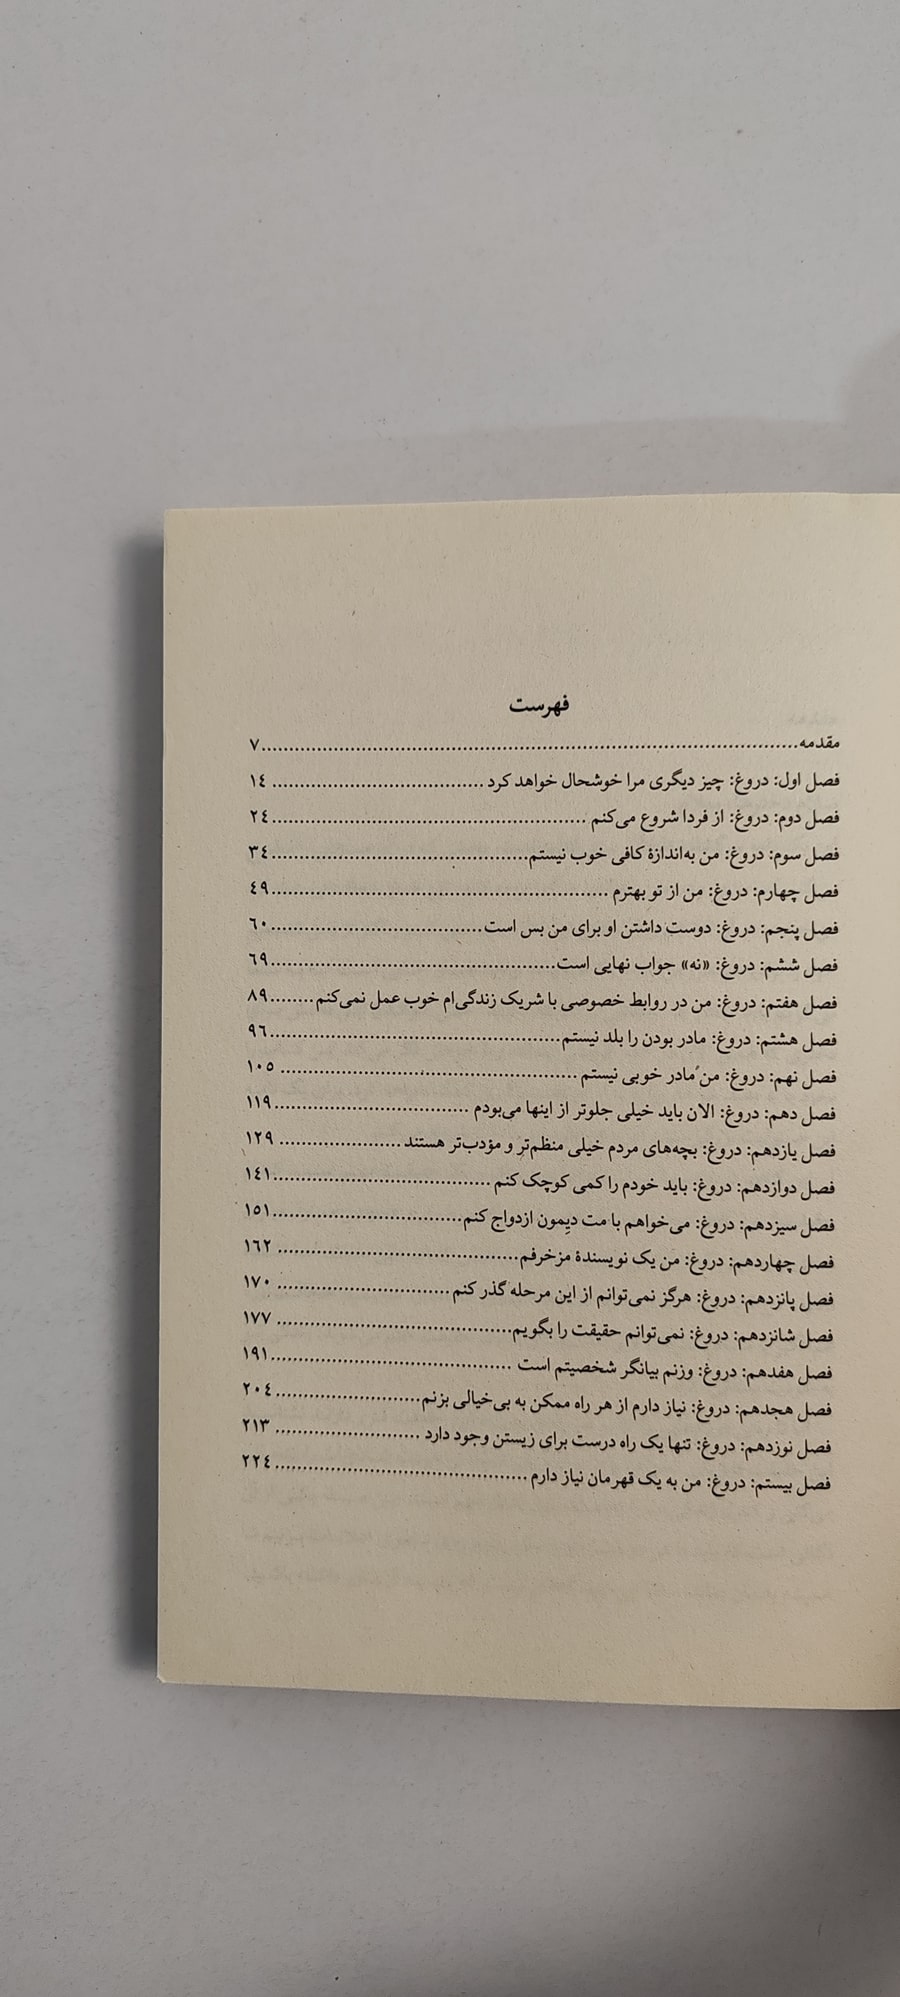 فهرست
مقدمه..........................................................................................٧
فصل اول: دروغ: چیز دیگری مرا خوشحال خواهد کرد ................................... ١٤
فصل دوم: دروغ: از فردا شروع می‌کنم ....................................................٢٤
فصل سوم: دروغ: من به‌اندازهٔ کافی خوب نیستم...........................................٣٤
فصل چهارم: دروغ: من از تو بهترم ........................................................٤٩
فصل پنجم: دروغ: دوست داشتن او برای من بس است...................................٦٠
فصل ششم: دروغ: «نه» جواب نهایی است...............................................٦٩
فصل هفتم: دروغ: من در روابط خصوصی با شریک زندگی‌ام خوب عمل نمی‌کنم........٨٩
فصل هشتم: دروغ: مادر بودن را بلد نیستم................................................٩٦
فصل نهم: دروغ: من مادر خوبی نیستم ................................................. ١٠٥
فصل دهم: دروغ: الان باید خیلی جلوتر از اینها می‌بودم ................................١١٩
فصل یازدهم: دروغ: بچه‌های مردم خیلی منظم‌تر و مؤدب‌تر هستند .................... ١٢٩
فصل دوازدهم: دروغ: باید خودم را کمی کوچک کنم ....................................١٤١
فصل سیزدهم: دروغ: می‌خواهم با مت دیِمون ازدواج کنم...............................١٥١
فصل چهاردهم: دروغ: من یک نویسندهٔ مزخرفم........................................ ١٦٢
فصل پانزدهم: دروغ: هرگز نمی‌توانم از این مرحله گذر کنم ............................ ١٧٠
فصل شانزدهم: دروغ: نمی‌توانم حقیقت را بگویم....................................... ١٧٧
فصل هفدهم: دروغ: وزنم بیانگر شخصیتم است ........................................١٩١
فصل هجدهم: دروغ: نیاز دارم از هر راه ممکن به بی‌خیالی بزنم........................٢٠٤
فصل نوزدهم: دروغ: تنها یک راه درست برای زیستن وجود دارد ........................ ٢١٣
فصل بیستم: دروغ: من به یک قهرمان نیاز دارم..........................................٢٢٤